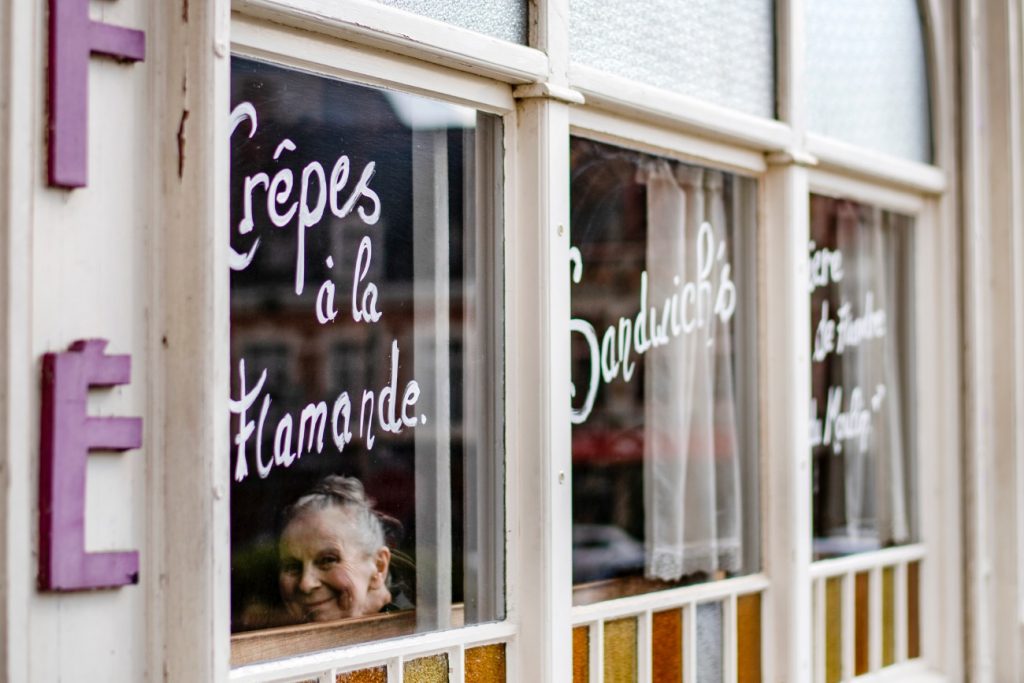 F
É
Crêpes
à la
Flamande.
Sandwich's
de Flandre
Moulin